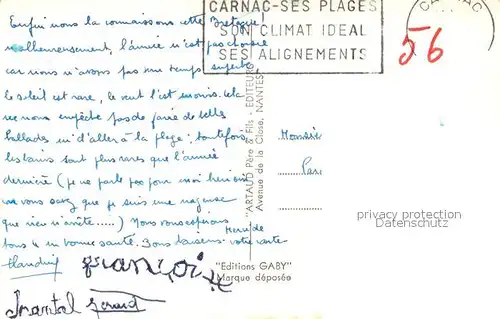 Enfin nous la connaissons cette Bretagne!
malheureusement, l'année n'est pas choisie
car nous n'avons pas un temps superbe
le soleil est rare, le vent l'est moins. Cela
ne nous empêche pas de faire de belles
ballades ni d'aller à la plage; toutefois,
les bains sont plus rares que l'année
dernière (je ne parle pas pour moi
vous savez que je suis une nageuse
que rien n'arrête.....) Nous vous espérons
tous 4 en bonne santé. Bons baisers.
Merci de
votre carte
françoise
Chantal Gérard
CARNAC-SES PLAGES
SON CLIMAT IDEAL
SES ALIGNEMENTS
56
"ARTAUD Père & Fils - EDITEURS
Avenue de la Close, NANTES"
Monsieur
"Editions GABY"
Marque déposée
privacy protection
Datenschutz